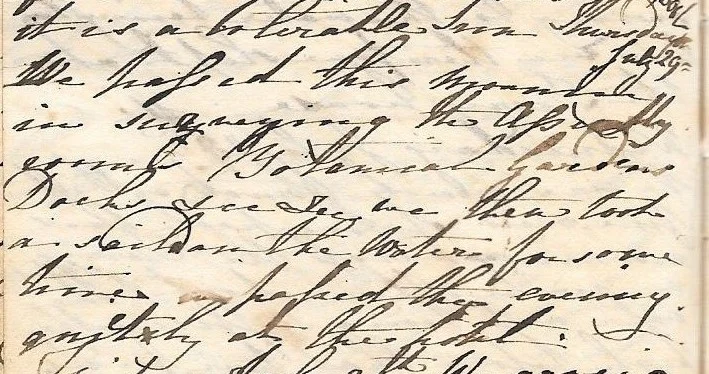 it is a tolerable Inn Thursday
July 29
We passed this morning
in surveying the Assembly
rooms Botanical Gardens
Docks &c &c we then took
a sail on the Water for some
time passed the evening
quietly at the hotel.